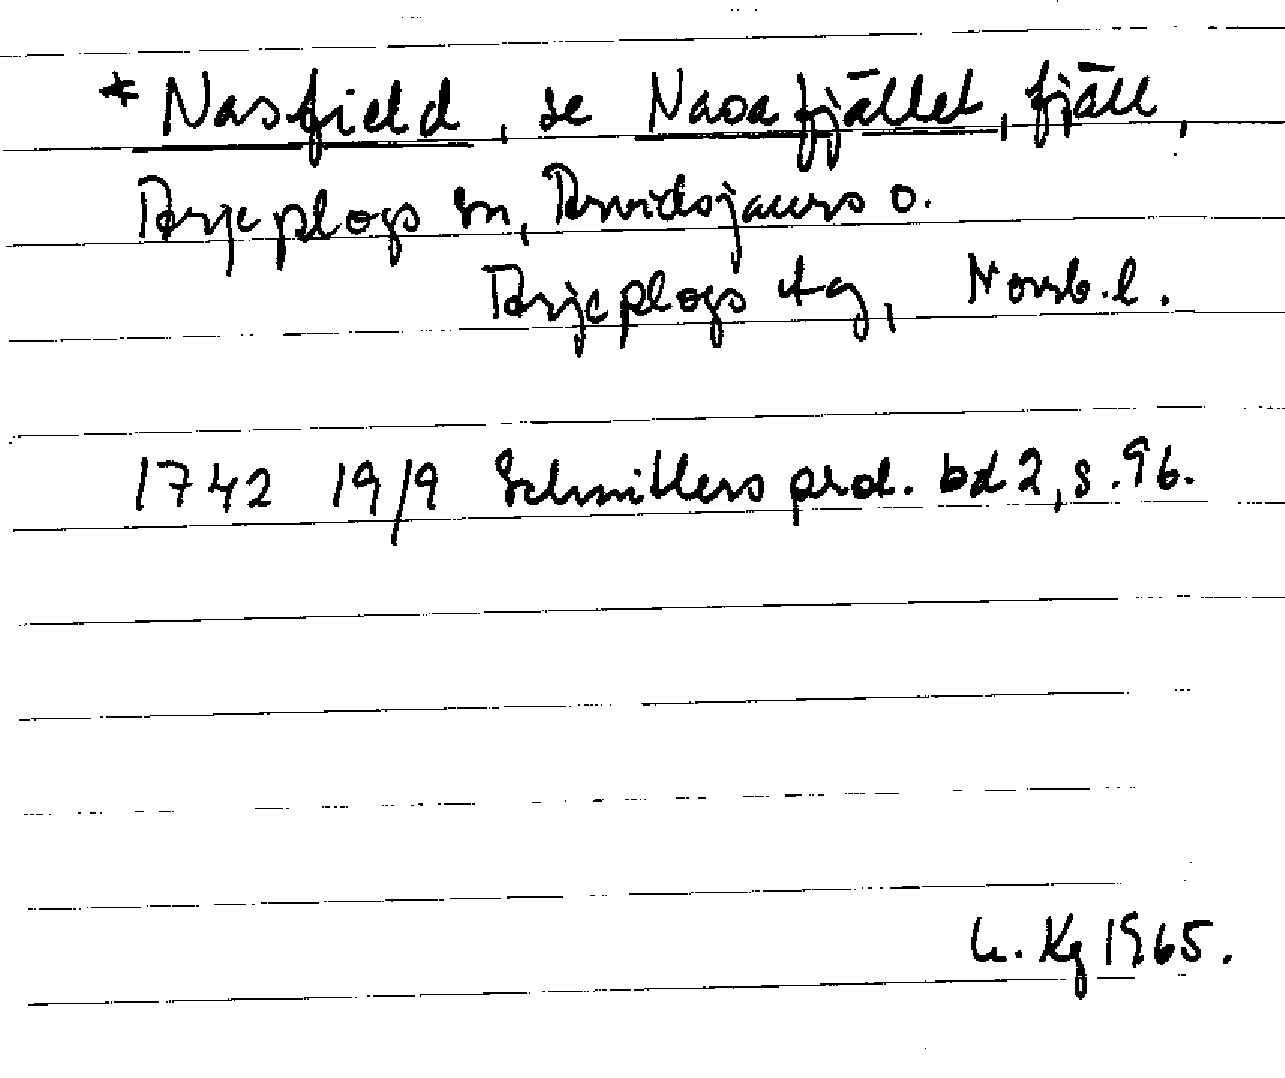 * Nasfield, se Nasafjället, fjäll,
Arjeplogs sn, Arvidsjaurs o.
Arjeplogs tg, Norrb. l.
1742 19/9 Schmitlers prot. bd 2, s. 96.
G. Kg 1965.